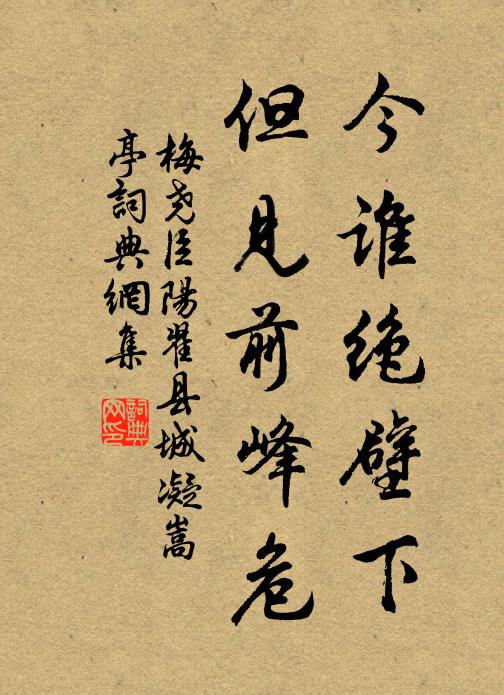 今谁绝壁下
但見前峰危
梅尧臣陽翟县城凝嵩
亭詞典網集
詞典
网印